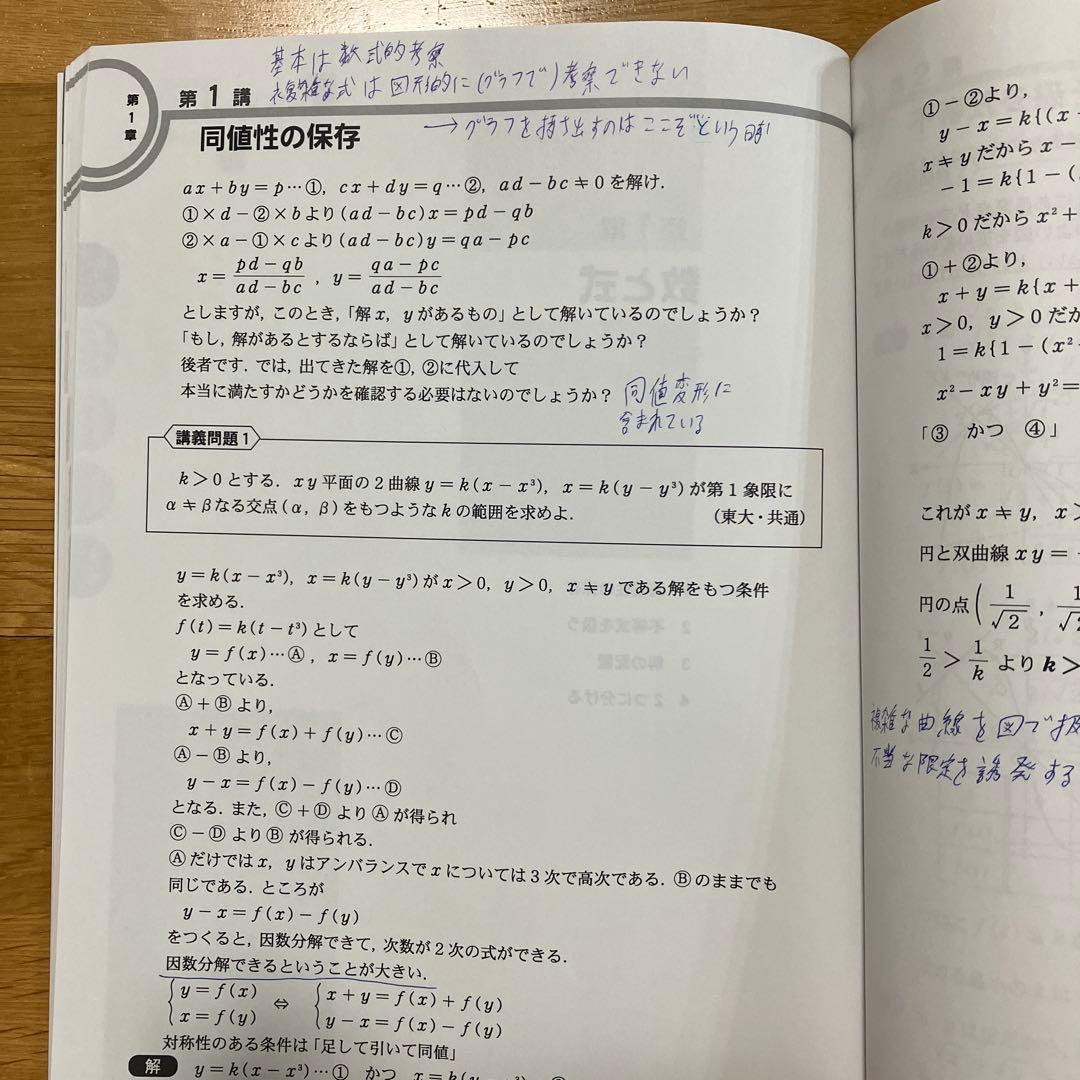 基本は数式的考察
複雑な式は図形的に(グラフで)考察できない
→グラフを持ち出すのはここぞという時
第1章
第1講
同値性の保存
ax+by=p…①, cx+dy=q…②, ad-bc≠0を解け.
①×d-②×bより(ad-bc)x=pd-qb
②×a-①×cより(ad-bc)y=qa-pc
x=\frac{pd-qb}{ad-bc}, y=\frac{qa-pc}{ad-bc}
としますが, このとき,「解x, yがあるもの」として解いているのでしょうか?
「もし, 解があるとするならば」として解いているのでしょうか?
後者です. では, 出てきた解を①, ②に代入して
本当に満たすかどうかを確認する必要はないのでしょうか?
同値変形に
含まれている
講義問題1
k>0とする. xy平面の2曲線y=k(x-x³), x=k(y-y³)が第1象限に
α≠βなる交点(α, β)をもつようなkの範囲を求めよ. (東大・共通)
y=k(x-x³), x=k(y-y³)がx>0, y>0, x≠yである解をもつ条件
を求める.
f(t)=k(t-t³)として
y=f(x)…Ⓐ, x=f(y)…Ⓑ
となっている.
Ⓐ+Ⓑより,
x+y=f(x)+f(y)…Ⓒ
Ⓐ-Ⓑより,
y-x=f(x)-f(y)…Ⓓ
となる. また, Ⓒ+ⒹよりⒶが得られ
Ⓒ-ⒹよりⒷが得られる.
Ⓐだけではx, yはアンバランスでxについては3次で高次である. Ⓑのままでも
同じである. ところが
y-x=f(x)-f(y)
をつくると, 因数分解できて, 次数が2次の式ができる.
因数分解できるということが大きい.
{y=f(x) ⇔ {x+y=f(x)+f(y)
{x=f(y) {y-x=f(x)-f(y)
対称性のある条件は「足して引いて同値」
解 y=k(x-x³)…① かつ
①-②より,
y-x=k{(x-
x≠yだからx-
-1=k{1-(
k>0だからx²+
①+②より,
x+y=k{x+
x>0, y>0だか
1=k{1-(x²
x²-xy+y²=
「③ かつ ④」
これがx≠y, x>
円と双曲線xy=
円の点(\frac{1}{√2},
\frac{1}{2}>\frac{1}{k}よりk>
複雑な曲線を図で扱
不当な限定を誘発する